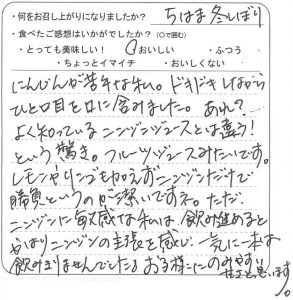 ・何をお召し上がりになりましたか? ちはま冬しぼり
・食べたご感想はいかがでしたか?(○で囲む)
・とっても美味しい! ・おいしい ・ふつう
・ちょっとイマイチ ・おいしくない
にんじんが苦手な私。ドキドキしながら
ひと口目を口に含みました。あれ?
よく知っているニンジンジュースとは違う!
という驚き。フルーツジュースみたいです。
レモンやリンゴも加えずニンジンだけで
勝負というのが潔いですネ。ただ
ニンジンに敏感な私は飲み進めると
やはりニンジンの主張を感じ一気に一本は
飲みきりませんでした。お子様にのみやすい
甘さと思います。